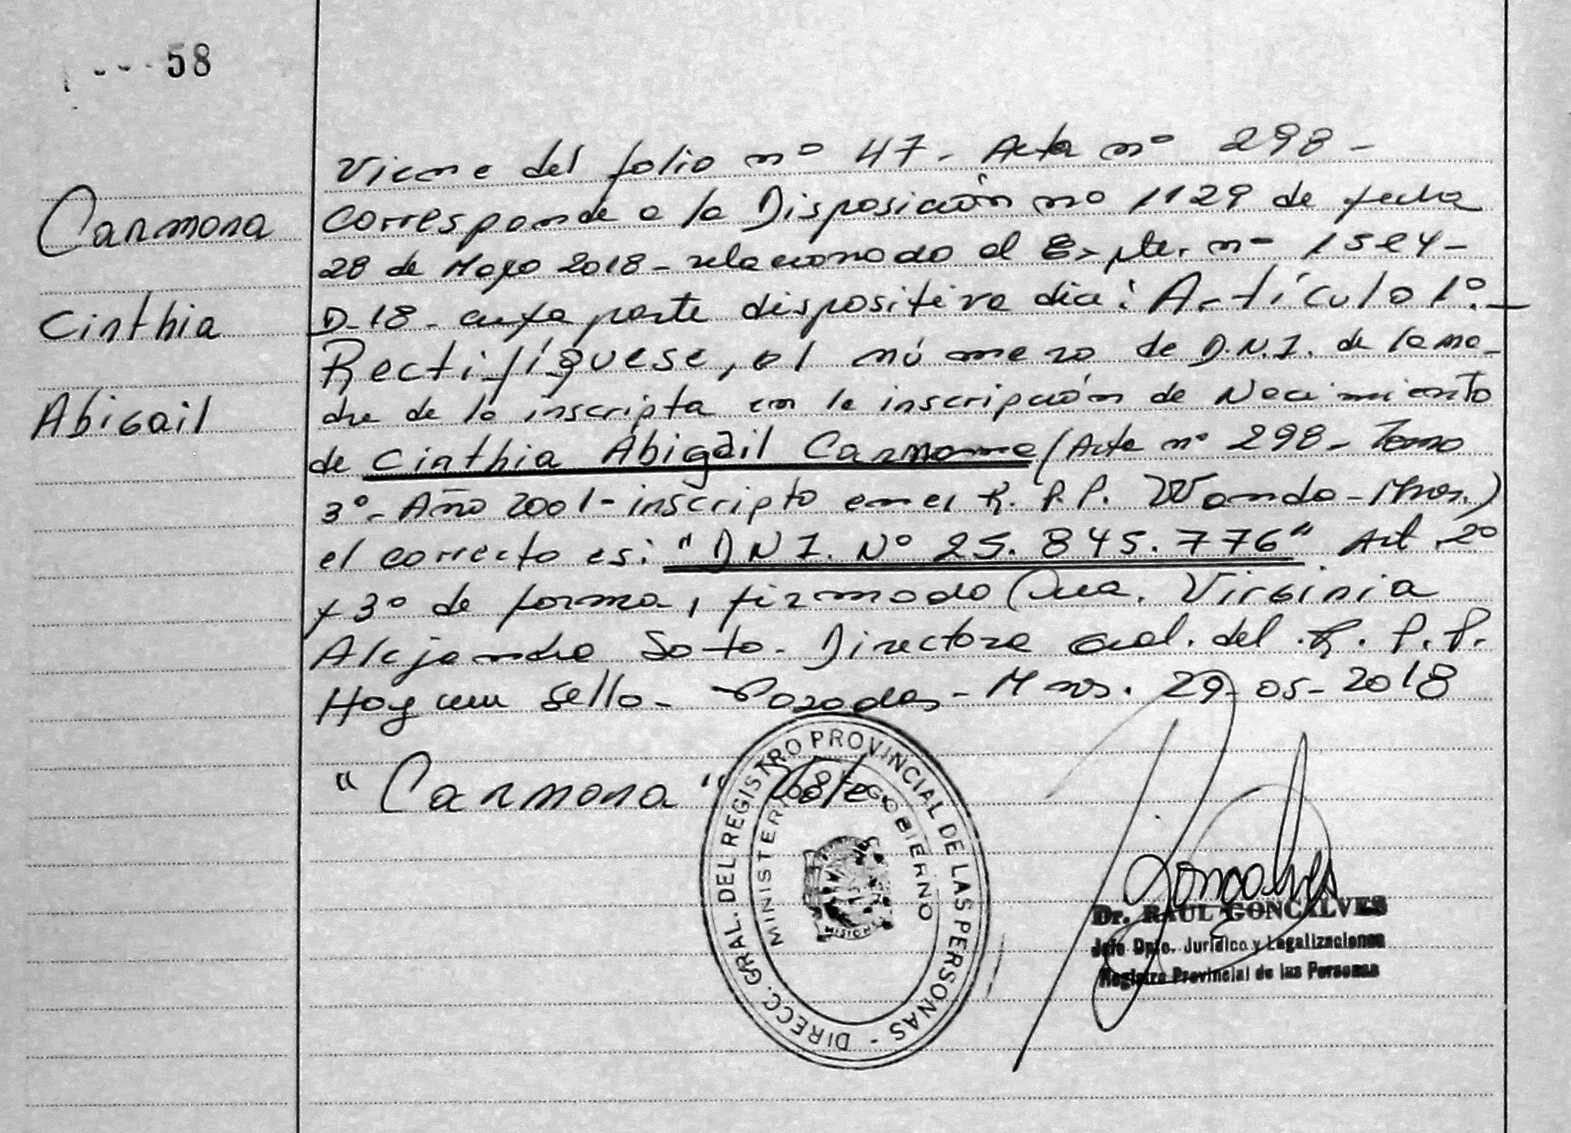 58
Carmona
Cinthia
Abigail
Viene del folio nº 47- Acta nº 298-
Corresponde a la Disposición nº 1129 de fecha
28 de Mayo 2018- relacionado al Expte. nº 1524-
D-18- cuya parte dispositiva dice: Artículo 1º-
Rectifíquese, el número de D.N.I. de la ma-
dre de la inscripta en la inscripción de Nacimiento
de Cinthia Abigail Carmona (Acta nº 298- Tomo
3º- Año 2001- inscripto en el R.P.P. Wanda- Mnes.)
el correcto es: "D N I. Nº 25.845.776" Art 2º
y 3º de forma, firmado Dra. Virginia
Alejandra Soto- Directora Gral. del R.P.P.
Hay un Sello- Posadas- Mnes. 29-05-2018
"Carmona" Vale.
DIRECC. GRAL. DEL REGISTRO PROVINCIAL DE LAS PERSONAS -
MINISTERIO DE GOBIERNO
MISIONES
Goncalves
Dr. RAUL GONCALVES
Jefe Dpto. Jurídico y Legalizaciones
Registro Provincial de las Personas